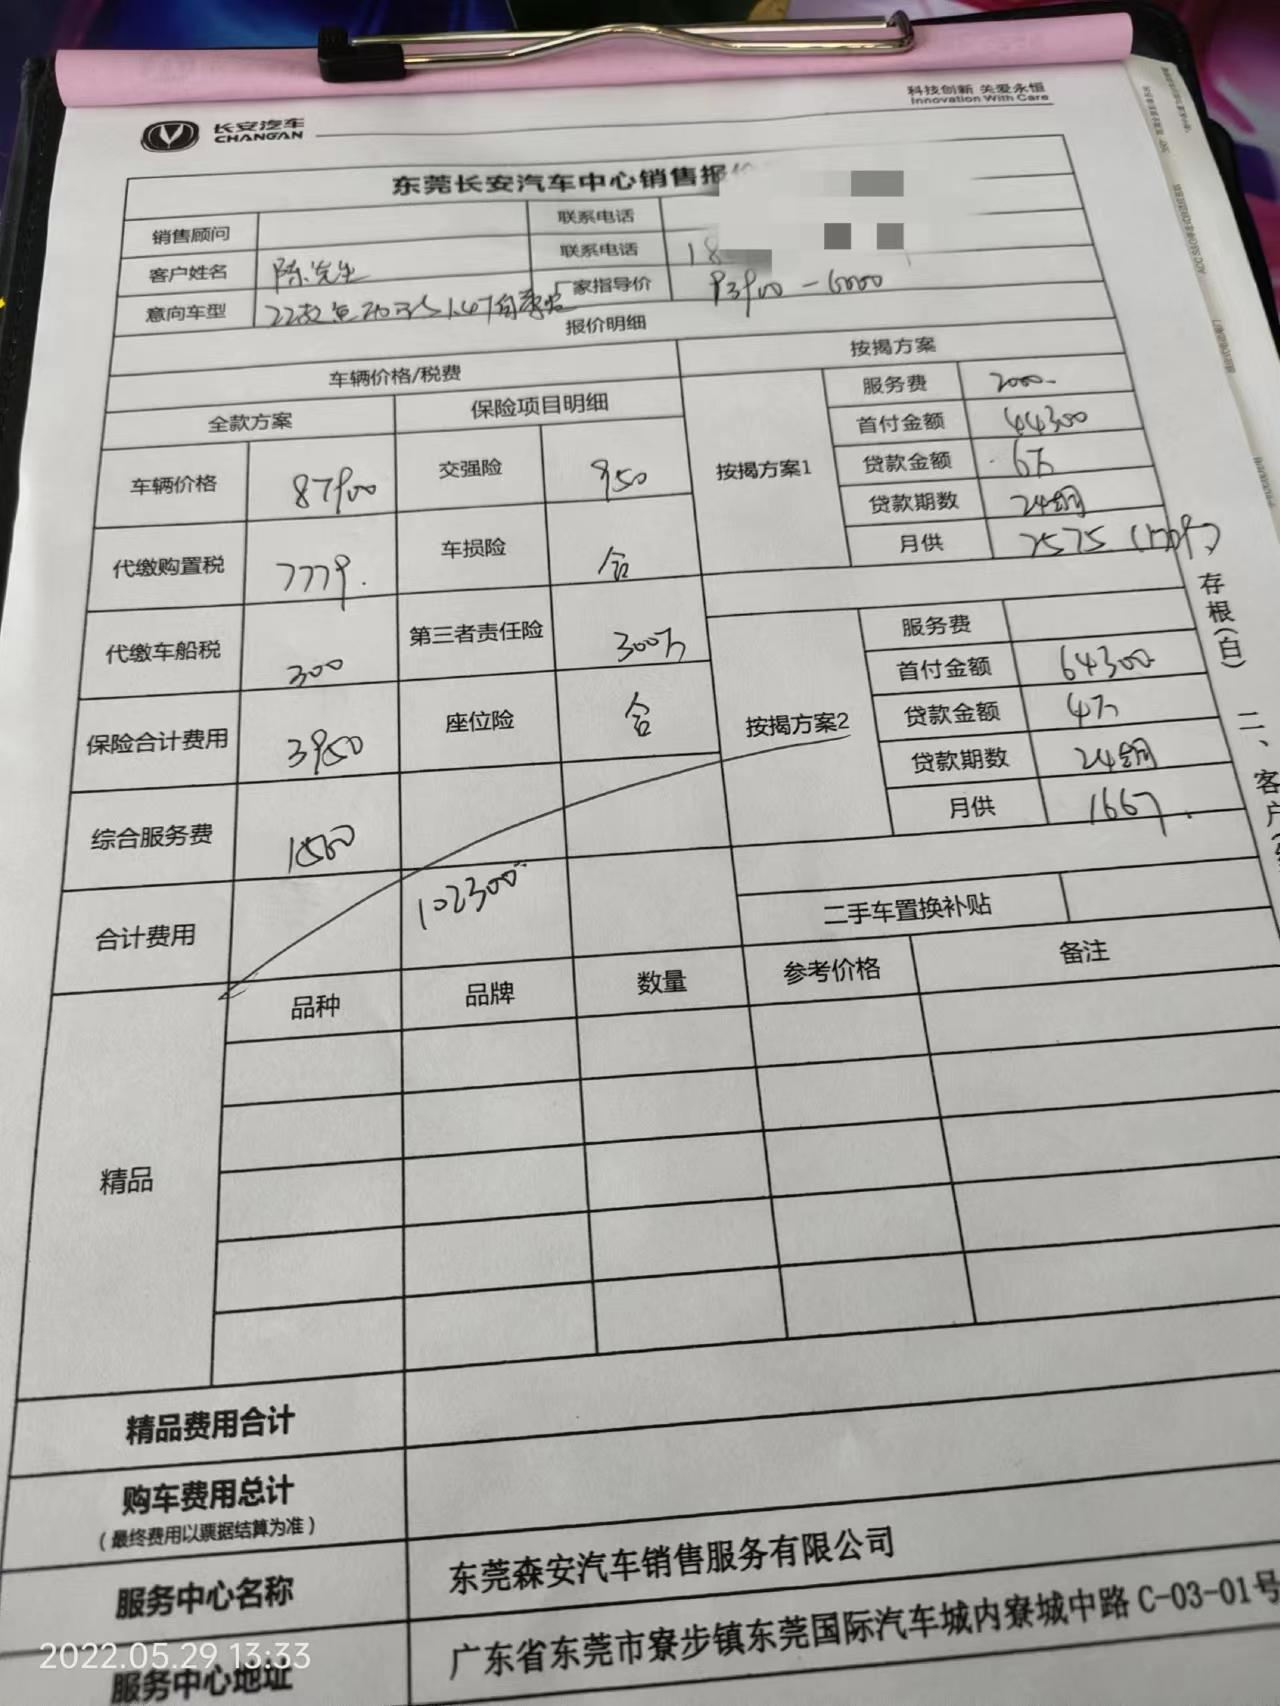 科技创新 关爱永恒
Innovation With Care
长安汽车
CHANGAN
东莞长安汽车中心销售报价
销售顾问 联系电话
客户姓名 陈先生 联系电话 18
意向车型 22款逸动 1.4T 厂家指导价 93900-6000
报价明细
车辆价格/税费 按揭方案
全款方案 保险项目明细
按揭方案1
服务费 2000
首付金额 44300
贷款金额 6万
贷款期数 24期
月供 2575
车辆价格 87900 交强险 950
代缴购置税 7779. 车损险 含
代缴车船税 300 第三者责任险 300万
保险合计费用 3950 座位险 含
综合服务费 1500
合计费用 102300
按揭方案2
服务费
首付金额 64300
贷款金额 4万
贷款期数 24期
月供 1667.
二手车置换补贴
存根(白)
二、客户(
精品 品种 品牌 数量 参考价格 备注
精品费用合计
购车费用总计
(最终费用以票据结算为准)
服务中心名称 东莞森安汽车销售服务有限公司
服务中心地址 广东省东莞市寮步镇东莞国际汽车城内寮城中路 C-03-01号
2022.05.29 13:33